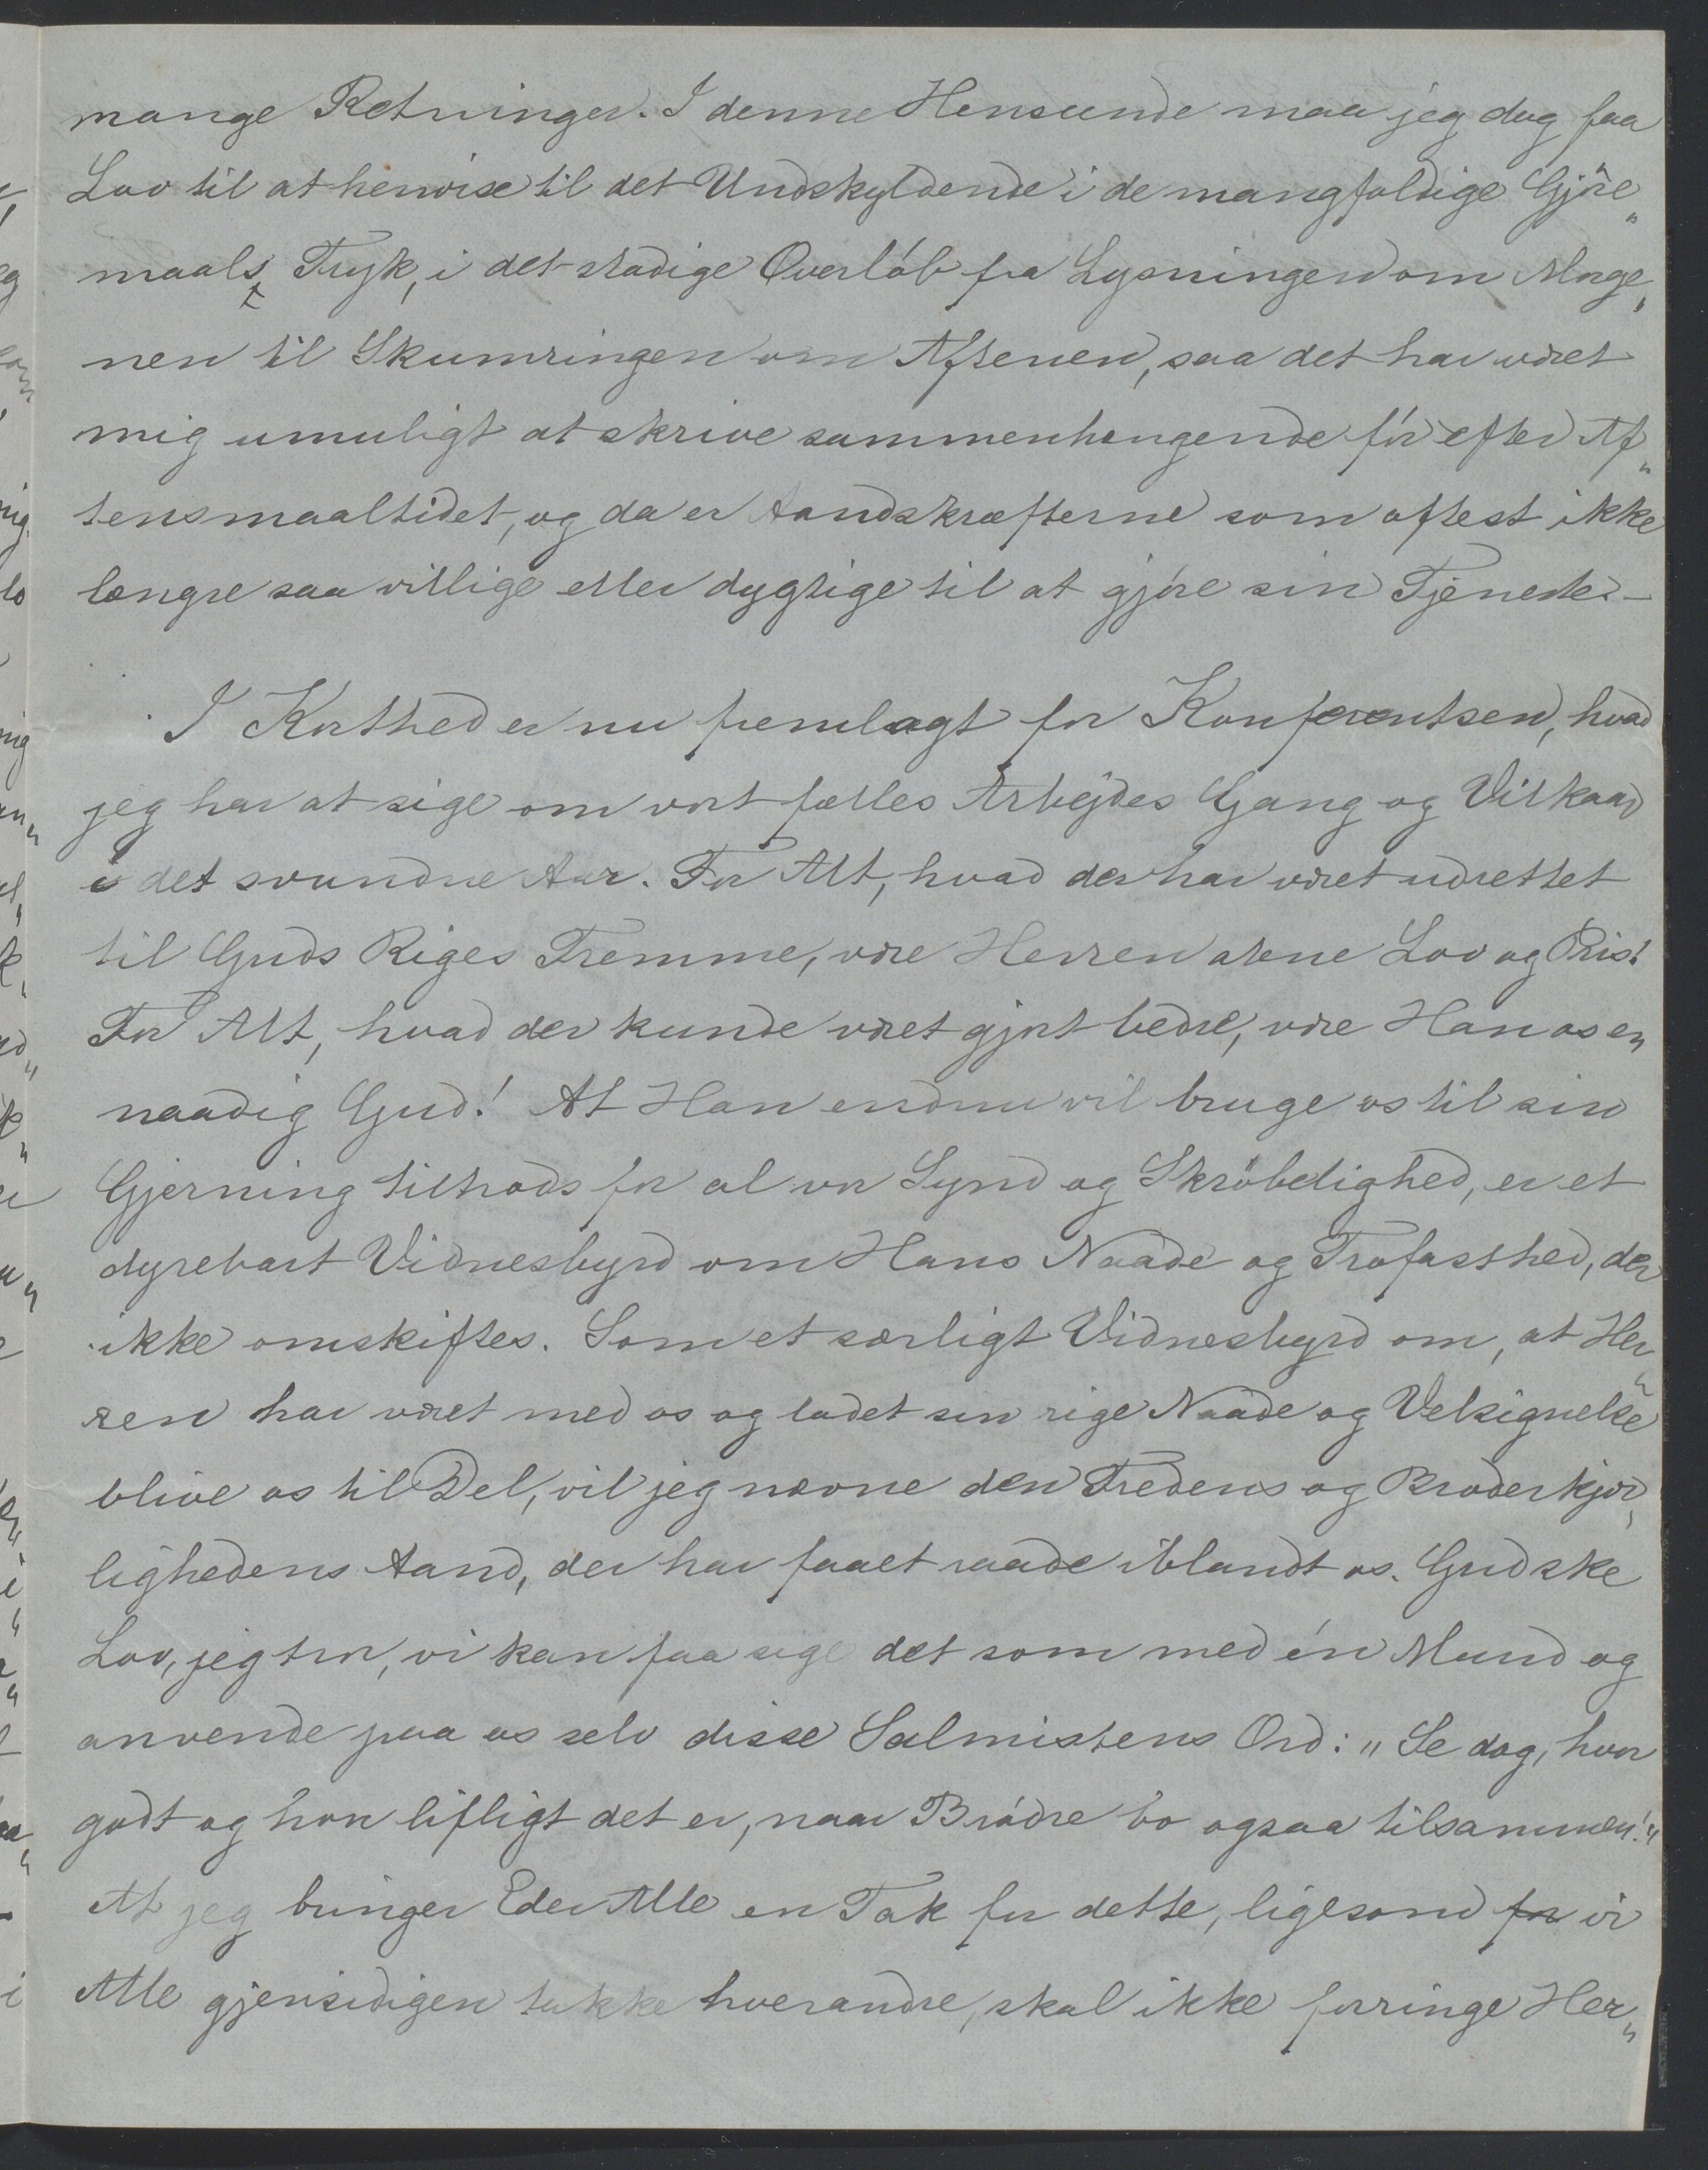 mange Retninger. I denne Henseende maa jeg dog faa
Lov til at henvise til det Undskyldende i de mangfoldige Gjöre„
maals Tryk, i det stadige Overlöb fra Lysningen om Morge„
nen til Skumringen om Aftenen, saa det har været
mig umuligt at skrive sammenhengende för efter Af„
tensmaaltidet, og da er Aandskræfterne som oftest ikke
længre saa villige eller dygtige til at gjöre sin Tjeneste. –
I Korthed er nu fremlagt for Konferentsen, hvad
jeg har at sige om vort fælles Arbejdes Gang og Vilkaar
i det svundne Aar. For Alt, hvad der har været udrettet
til Guds Riges Fremme, være Herren alene Lov og Pris!
For Alt, hvad der kunde været gjort bedre, være Han os en
naadig Gud! At Han endnu vil bruge os til sin
Gjerning tiltrods for al vor Synd og Skröbelighed, er et
dyrebart Vidnesbyrd om Hans Naade og Trofasthed, der
ikke omskiftes. Som et særligt Vidnesbyrd om, at Her„
ren har været med os og ladet sin rige Naade og Velsignelse
blive os til Del, vil jeg nævne den Fredens og Broderkjær„
lighedens Aand, der har faaet raade iblandt os. Gud ske
Lov, jeg tror, vi kan faa sige det som med én Mund og
anvende paa os selv disse Salmistens Ord: „Se dog, hvor
godt og hvor lifligt det er, naar Brödre bo ogsaa tilsammen!"
At jeg bringer Eder Alle en Tak for dette, ligesom for vi
Alle gjensidigen takke hverandre, skal ikke forringe Her„